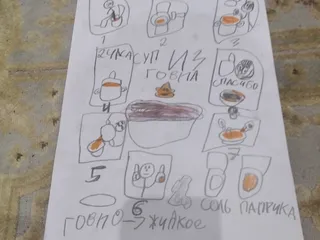 1 2 3
2 ЧАСА СУП ИЗ ГОВНА
СПАСИБО
4
5 6 7
8
СОЛЬ ПАПРИКА
ГОВНО → ЖИДКОЕ